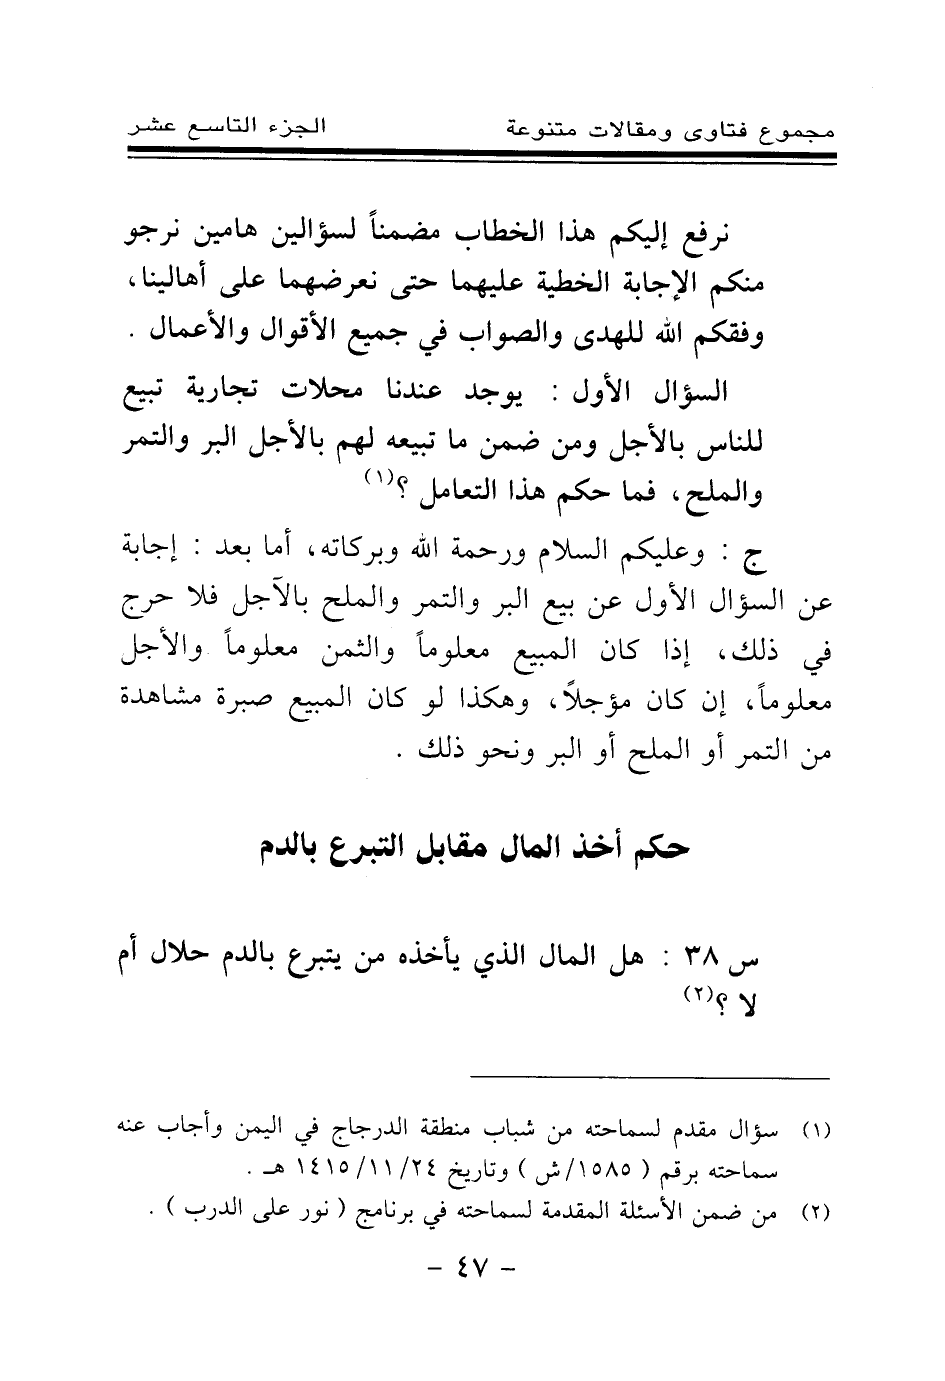 مجموع فتاوى ومقالات متنوعة الجزء التاسع عشر
نرفع إليكم هذا الخطاب مضمناً لسؤالين هامين نرجو
منكم الإجابة الخطية عليهما حتى نعرضهما على أهالينا،
وفقكم الله للهدى والصواب في جميع الأقوال والأعمال .
السؤال الأول : يوجد عندنا محلات تجارية تبيع
للناس بالأجل ومن ضمن ما تبيعه لهم بالأجل البر والتمر
والملح، فما حكم هذا التعامل ؟(١)
ج : وعليكم السلام ورحمة الله وبركاته، أما بعد : إجابة
عن السؤال الأول عن بيع البر والتمر والملح بالآجل فلا حرج
في ذلك، إذا كان المبيع معلوماً والثمن معلوماً والأجل
معلوماً، إن كان مؤجلاً، وهكذا لو كان المبيع صبرة مشاهدة
من التمر أو الملح أو البر ونحو ذلك .
حكم أخذ المال مقابل التبرع بالدم
س ٣٨ : هل المال الذي يأخذه من يتبرع بالدم حلال أم
لا ؟(٢)
(١) سؤال مقدم لسماحته من شباب منطقة الدرجاج في اليمن وأجاب عنه
سماحته برقم ( ١٥٨٥/ش ) وتاريخ ١٤١٥/١١/٢٤ هـ .
(٢) من ضمن الأسئلة المقدمة لسماحته في برنامج ( نور على الدرب ) .
- ٤٧ -